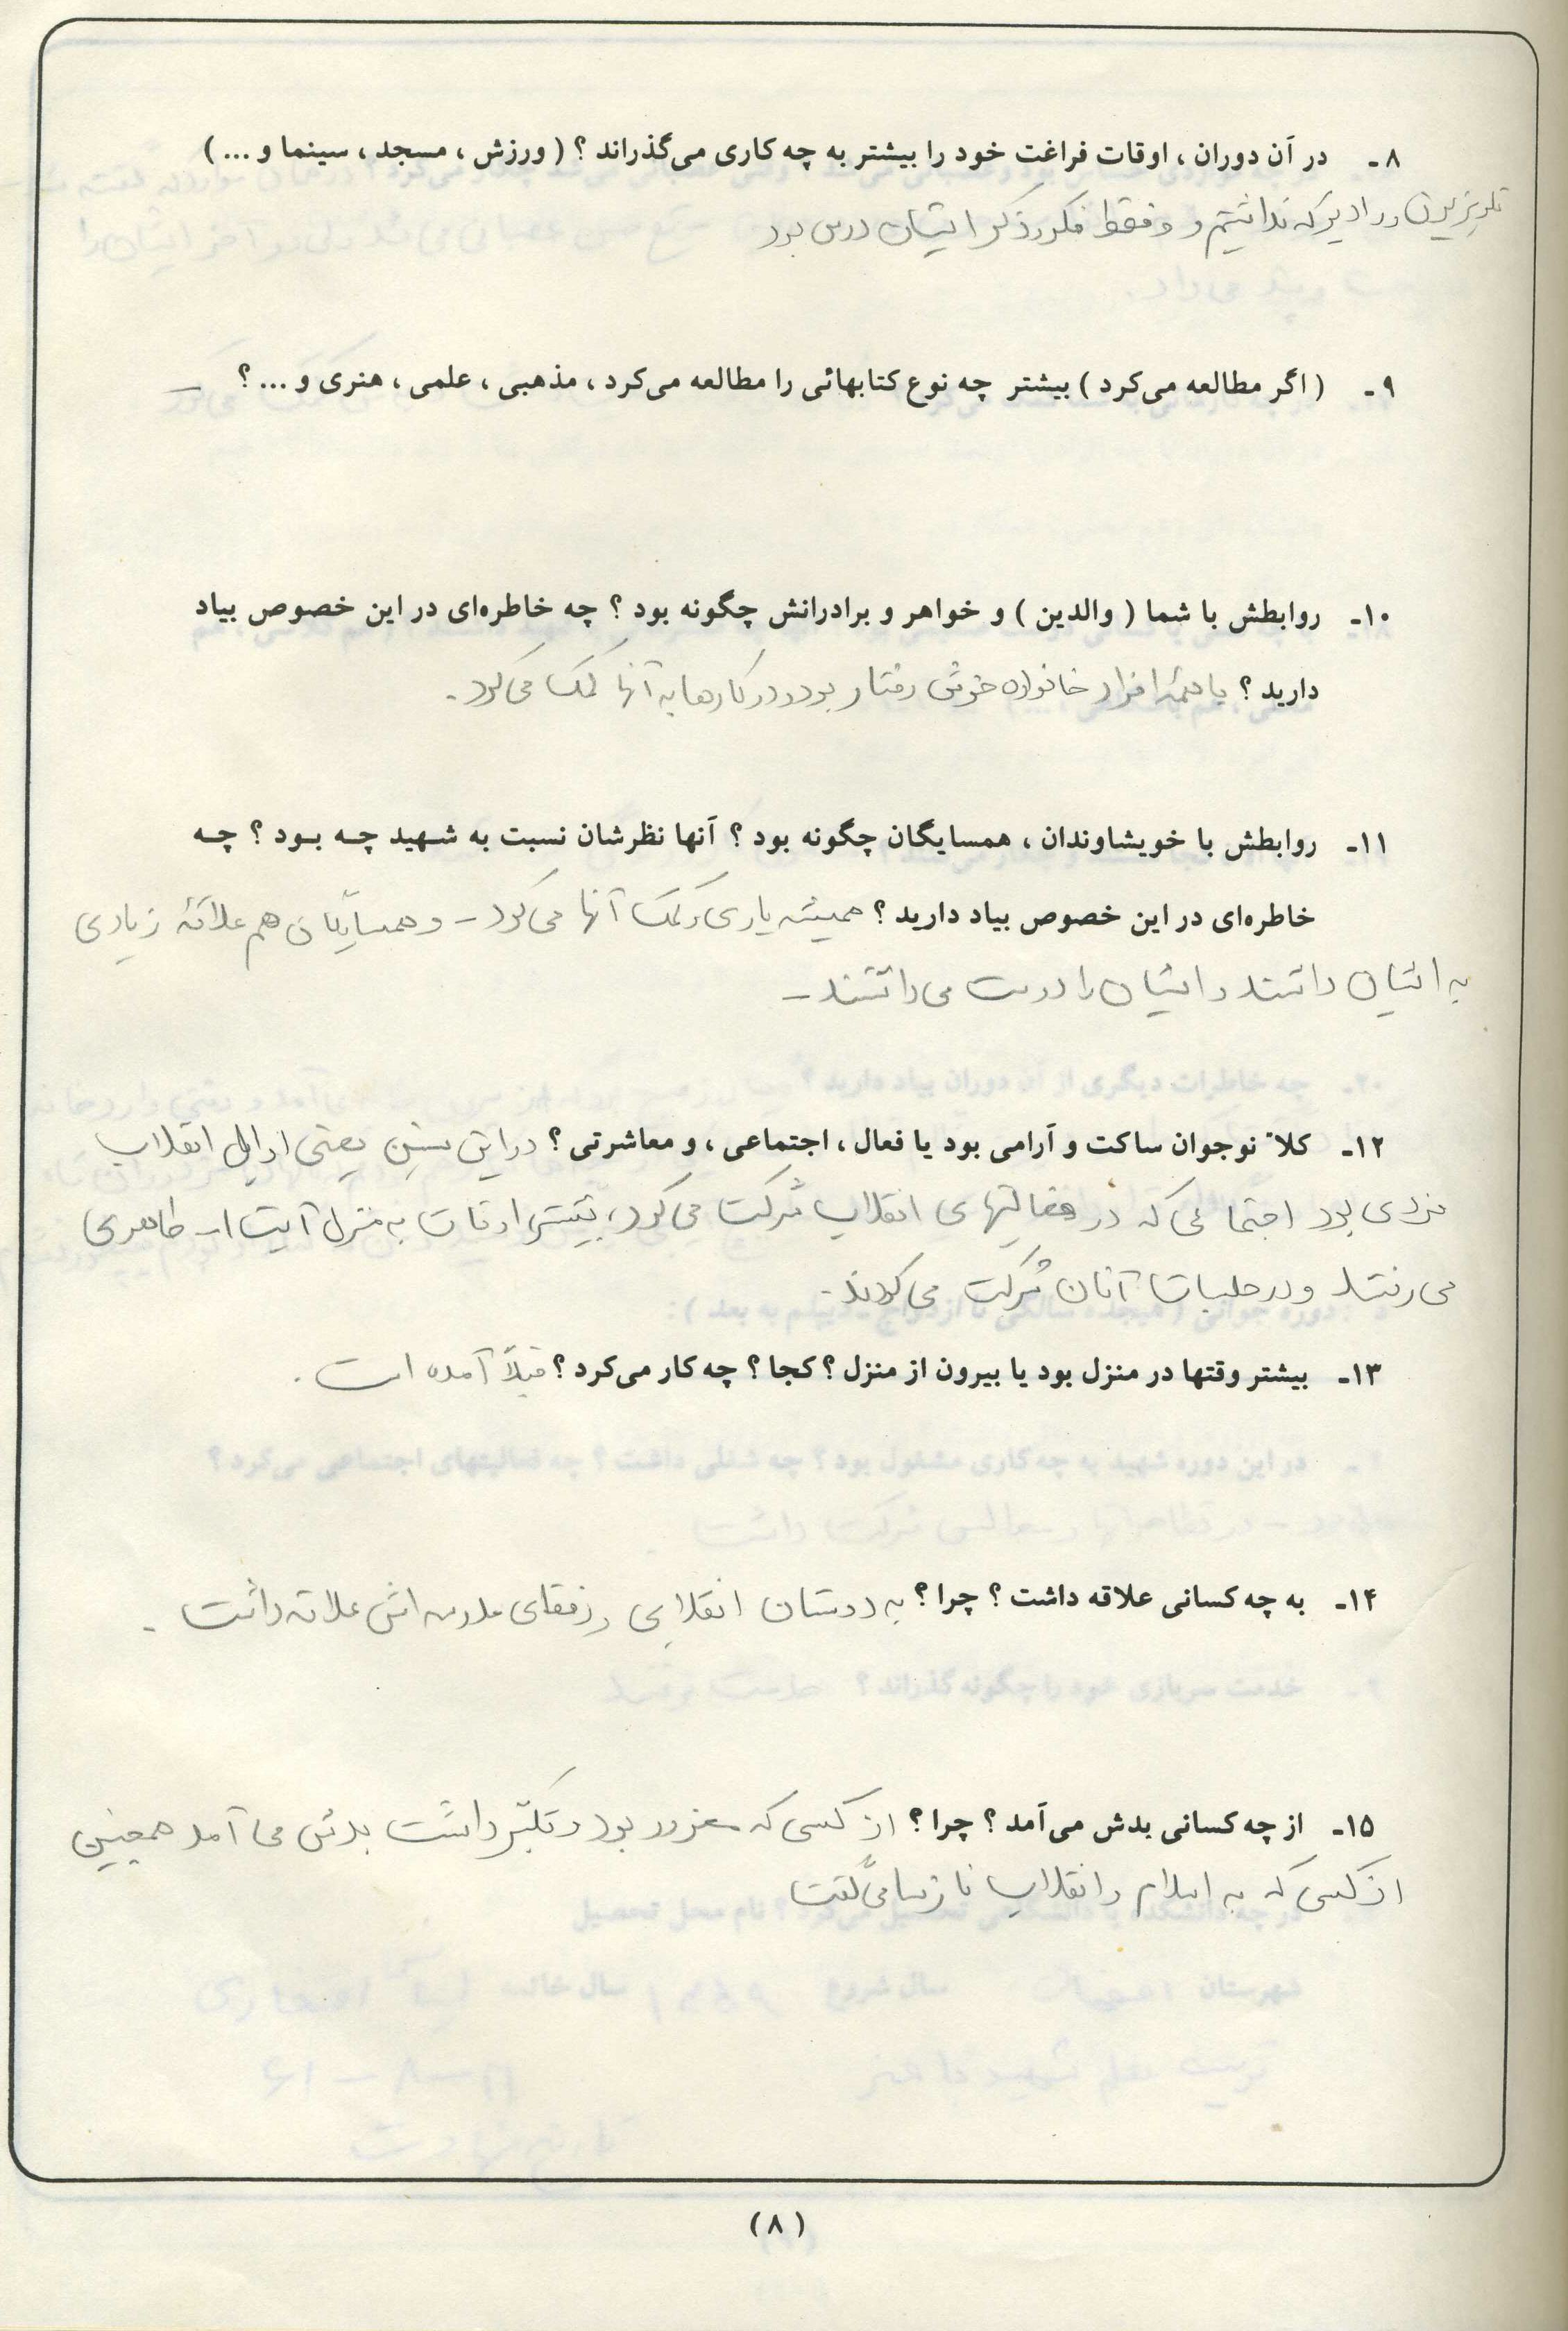 ۸ـ در آن دوران ، اوقات فراغت خود را بیشتر به چه کاری می‌گذراند ؟ ( ورزش ، مسجد ، سینما و ... )
تلویزیون و رادیو که نداشتیم و فقط فکر و ذکر ایشان درس بود
۹ـ ( اگر مطالعه می‌کرد ) بیشتر چه نوع کتابهائی را مطالعه می‌کرد ، مذهبی ، علمی ، هنری و ... ؟ ـ
۱۰ـ روابطش با شما ( والدین ) و خواهر و برادرانش چگونه بود ؟ چه خاطره‌ای در این خصوص بیاد
دارید ؟ با همۀ افراد خانواده خوش رفتار بود و در کارها به آنها کمک می‌کرد .
۱۱ـ روابطش با خویشاوندان ، همسایگان چگونه بود ؟ آنها نظرشان نسبت به شهید چه بود ؟ چه
خاطره‌ای در این خصوص بیاد دارید ؟ همیشه یاری و کمک آنها می‌کرد ـ و همسایگان هم علاقۀ زیادی
به ایشان داشتند و ایشان را دوست می‌داشتند ـ
۱۲ـ کلاً نوجوان ساکت و آرامی بود یا فعال ، اجتماعی ، و معاشرتی ؟ در این سنین یعنی اوایل انقلاب
فردی بود اجتماعی که در فعالیتهای انقلاب شرکت می‌کرد ، بیشتر اوقات به منزل آیت ا.. طاهری
می‌رفتند و در جلسات آنان شرکت می‌کردند .
۱۳ـ بیشتر وقتها در منزل بود یا بیرون از منزل ؟ کجا ؟ چه کار می‌کرد ؟ قبلاً آمده است .
۱۴ـ به چه کسانی علاقه داشت ؟ چرا ؟ به دوستان انقلابی و رفقای مدرسه اش علاقه داشت .
۱۵ـ از چه کسانی بدش می‌آمد ؟ چرا ؟ از کسی که مغرور بود و تکبّر داشت بدش می آمد همچنین
از کسی که به اسلام و انقلاب ناسزا می‌گفت
( ۸ )